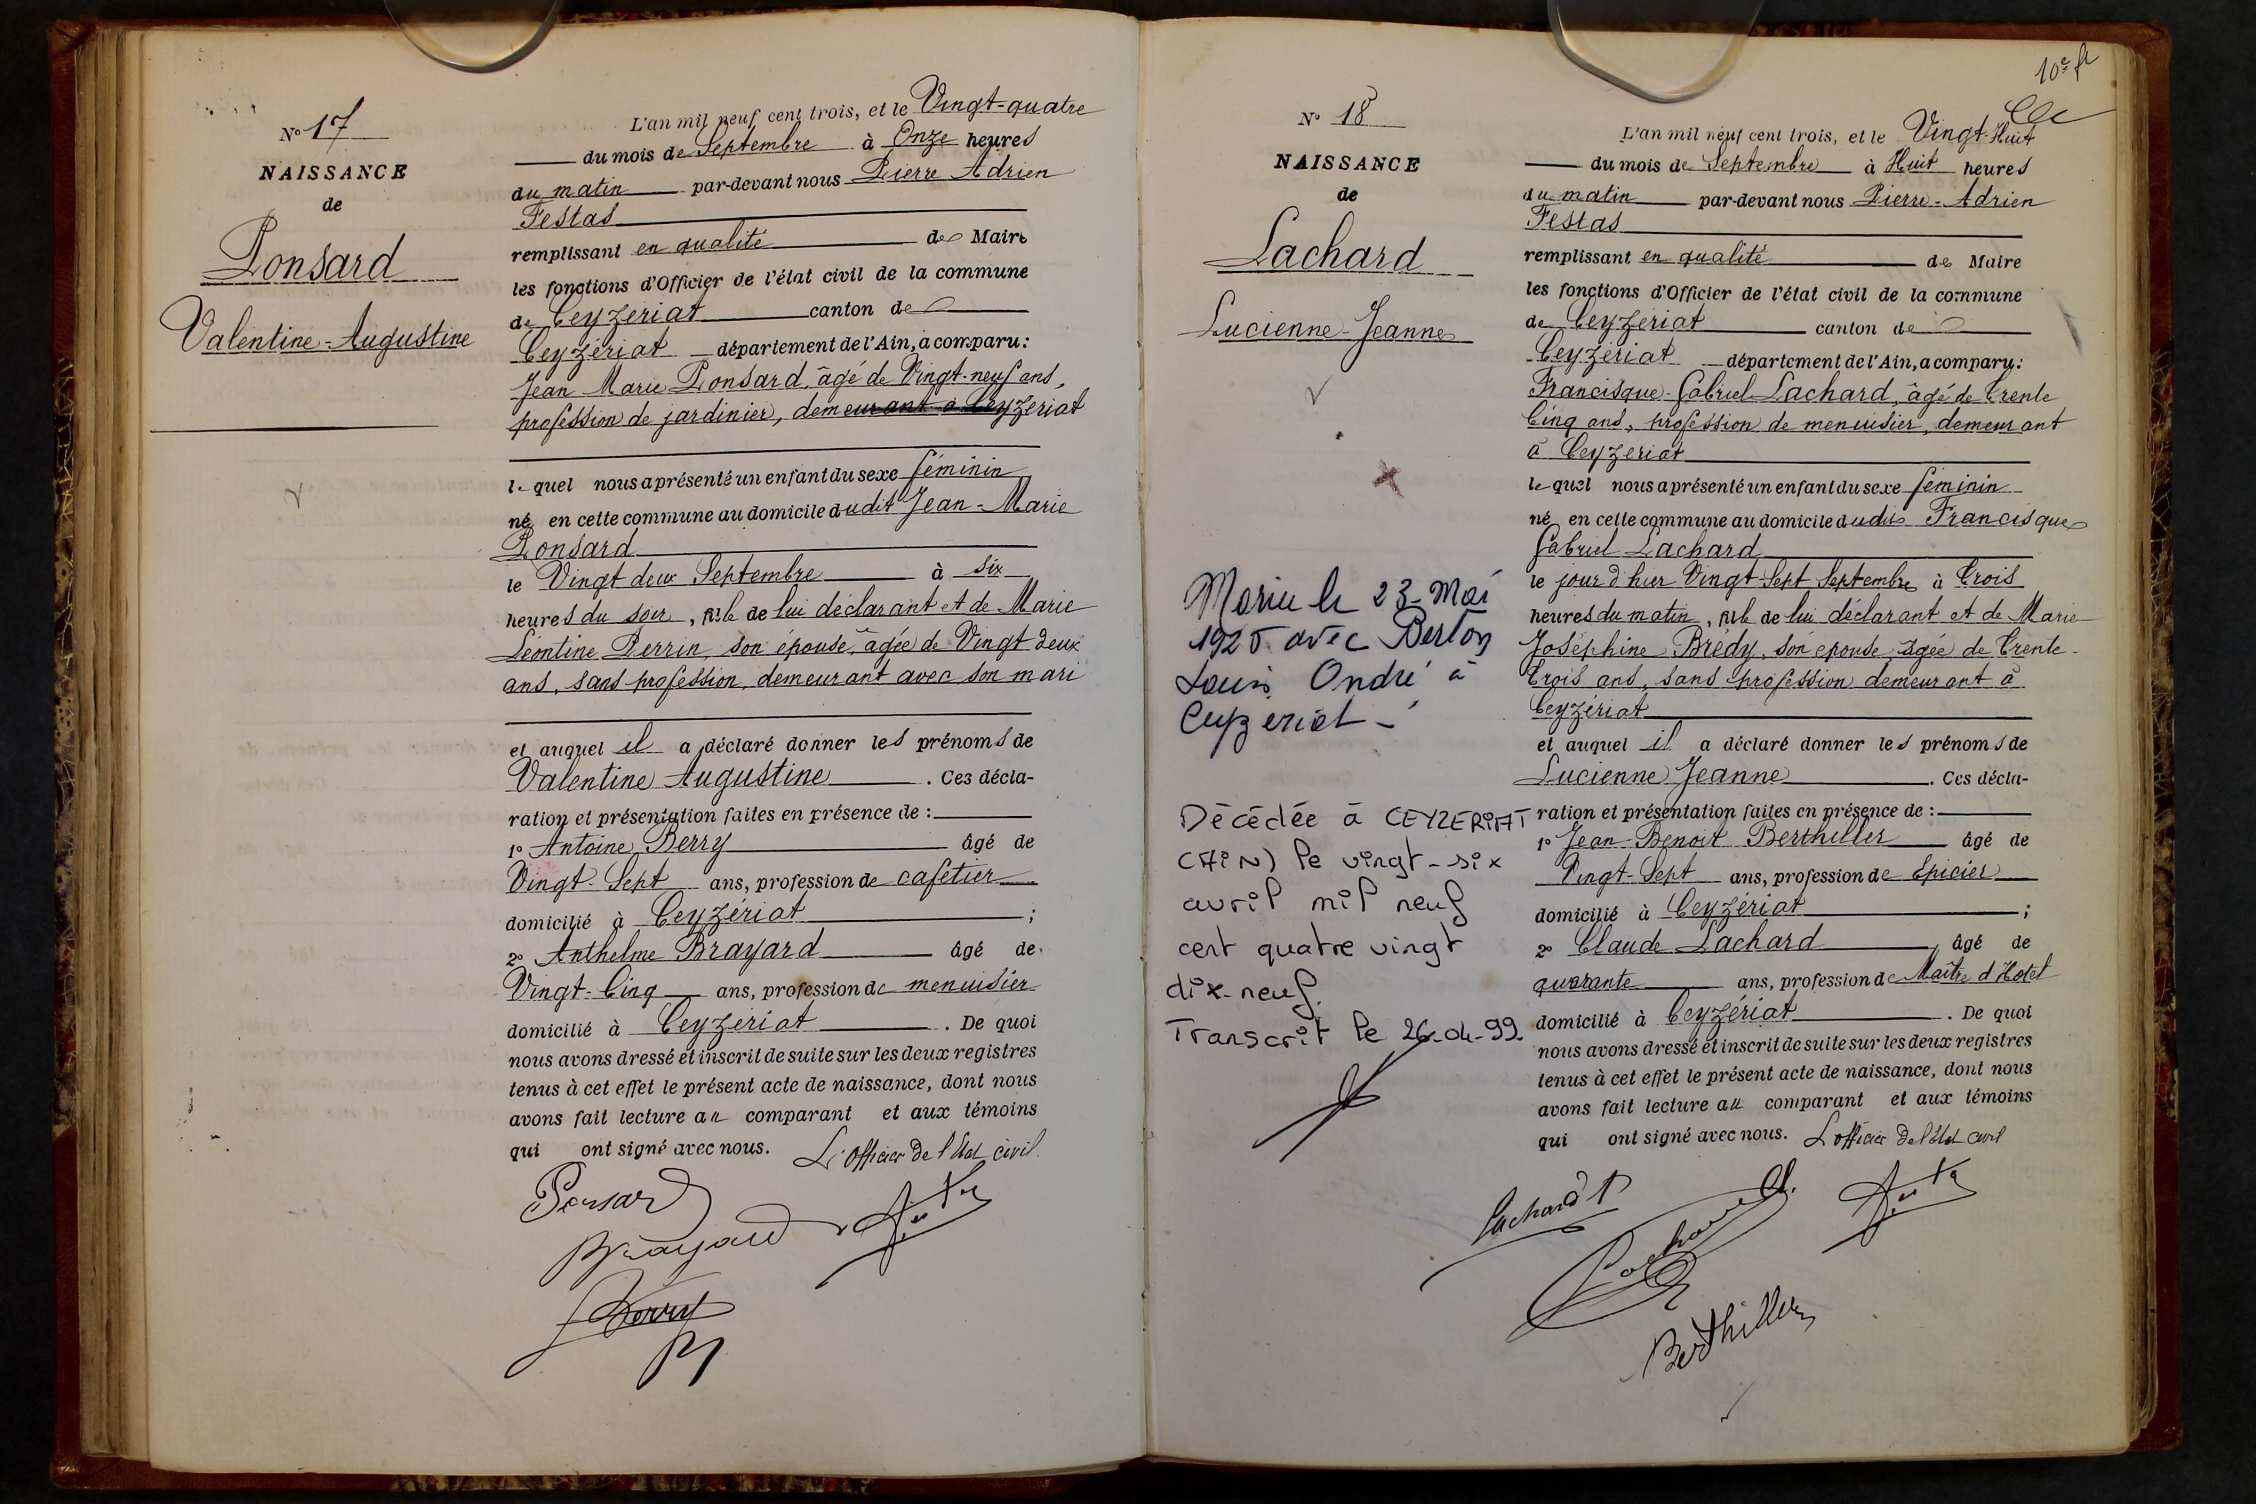 N° 17
NAISSANCE
de
Ponsard
Valentine-Augustine
L'an mil neuf cent trois, et le Vingt-quatre
du mois de Septembre à Onze heures
du matin par-devant nous Pierre Adrien
Festas
remplissant en qualité de Maire
les fonctions d'Officier de l'état civil de la commune
de Ceyzériat canton de
Ceyzériat département de l'Ain, a comparu:
Jean Marie Ponsard, âgé de Vingt-neuf ans,
profession de jardinier, demeurant à Ceyzeriat
lequel nous a présenté un enfant du sexe féminin
né en cette commune au domicile dudit Jean-Marie
Ponsard
le Vingt deux Septembre à six
heures du soir, fille de lui déclarant et de Marie
Léontine Perrin, son épouse, âgée de Vingt deux
ans, sans profession, demeurant avec son mari
et auquel il a déclaré donner les prénoms de
Valentine Augustine. Ces décla-
ration et présentation faites en présence de :
1° Antoine Berry âgé de
Vingt-Sept ans, profession de cafetier
domicilié à Ceyzériat ;
2° Anthelme Brayard âgé de
Vingt-Cinq ans, profession de menuisier
domicilié à Ceyzériat. De quoi
nous avons dressé et inscrit de suite sur les deux registres
tenus à cet effet le présent acte de naissance, dont nous
avons fait lecture au comparant et aux témoins
qui ont signé avec nous. L'officier de l'état civil.
Ponsard
Brayard
Berry
10e ft
N° 18
NAISSANCE
de
Lachard
Lucienne-Jeanne
Marié le 23 Mai
1925 avec Berlon
Louis André à
Ceyzeriat -
Décédée à CEYZERIAT
(AIN) le vingt-six
avril mil neuf
cent quatre vingt
dix-neuf.
Transcrit le 26-04-99.
L'an mil neuf cent trois, et le Vingt-Huit
du mois de Septembre à Huit heures
du matin par-devant nous Pierre-Adrien
Festas
remplissant en qualité de Maire
les fonctions d'Officier de l'état civil de la commune
de Ceyzériat canton de
Ceyzériat département de l'Ain, a comparu:
Francisque-Gabriel Lachard, âgé de Trente
Cinq ans, profession de menuisier, demeurant
à Ceyzeriat
lequel nous a présenté un enfant du sexe féminin
né en cette commune au domicile dudit Francisque
Gabriel Lachard
le jour d'hier Vingt-Sept Septembre à Trois
heures du matin, fille de lui déclarant et de Marie
Joséphine Brédy, son épouse, âgée de Trente-
Trois ans, sans profession demeurant à
Ceyzériat
et auquel il a déclaré donner les prénoms de
Lucienne Jeanne. Ces décla-
ration et présentation faites en présence de :
1° Jean-Benoit Berthiller âgé de
Vingt-Sept ans, profession de Epicier
domicilié à Ceyzériat ;
2° Claude Lachard, âgé de
quarante ans, profession de Maître d'Hotel
domicilié à Ceyzériat. De quoi
nous avons dressé et inscrit de suite sur les deux registres
tenus à cet effet le présent acte de naissance, dont nous
avons fait lecture au comparant et aux témoins
qui ont signé avec nous. L'officier de l'état civil
Lachard
Lachard
Berthiller